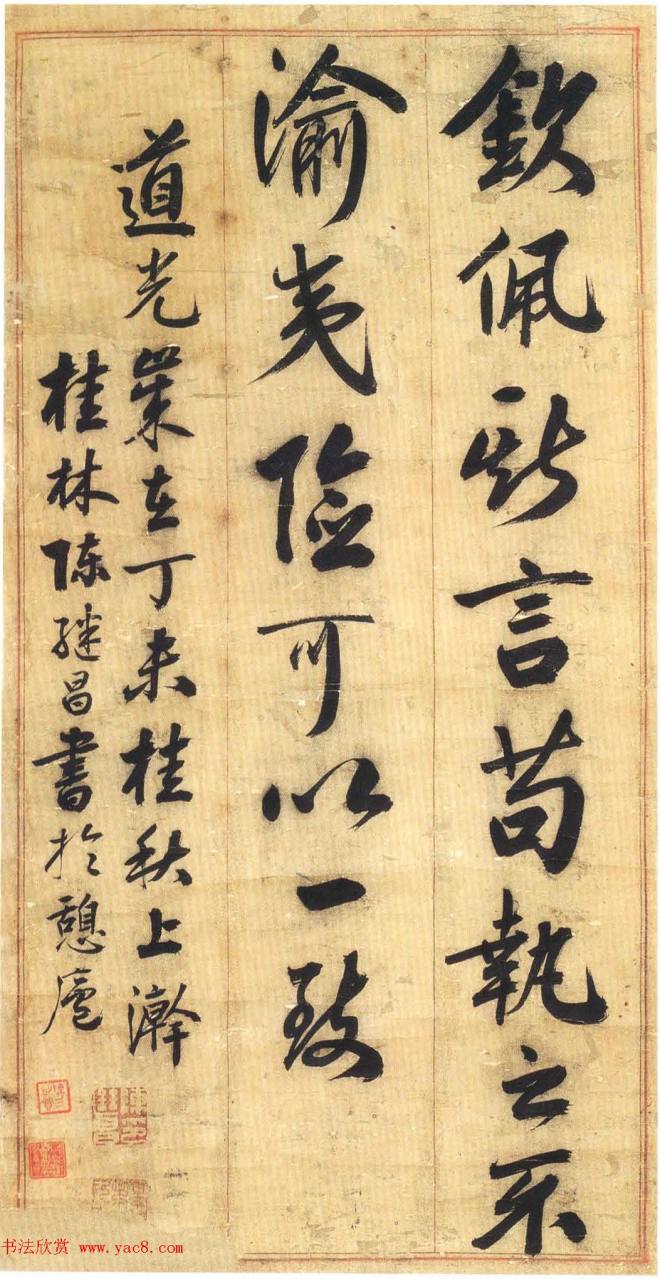 钦佩斯言苟執之不
渝夷險可以一致
道光歲在丁未桂秋上澣
桂林陳繼昌書於憩廬
书法欣赏 www.yac8.com